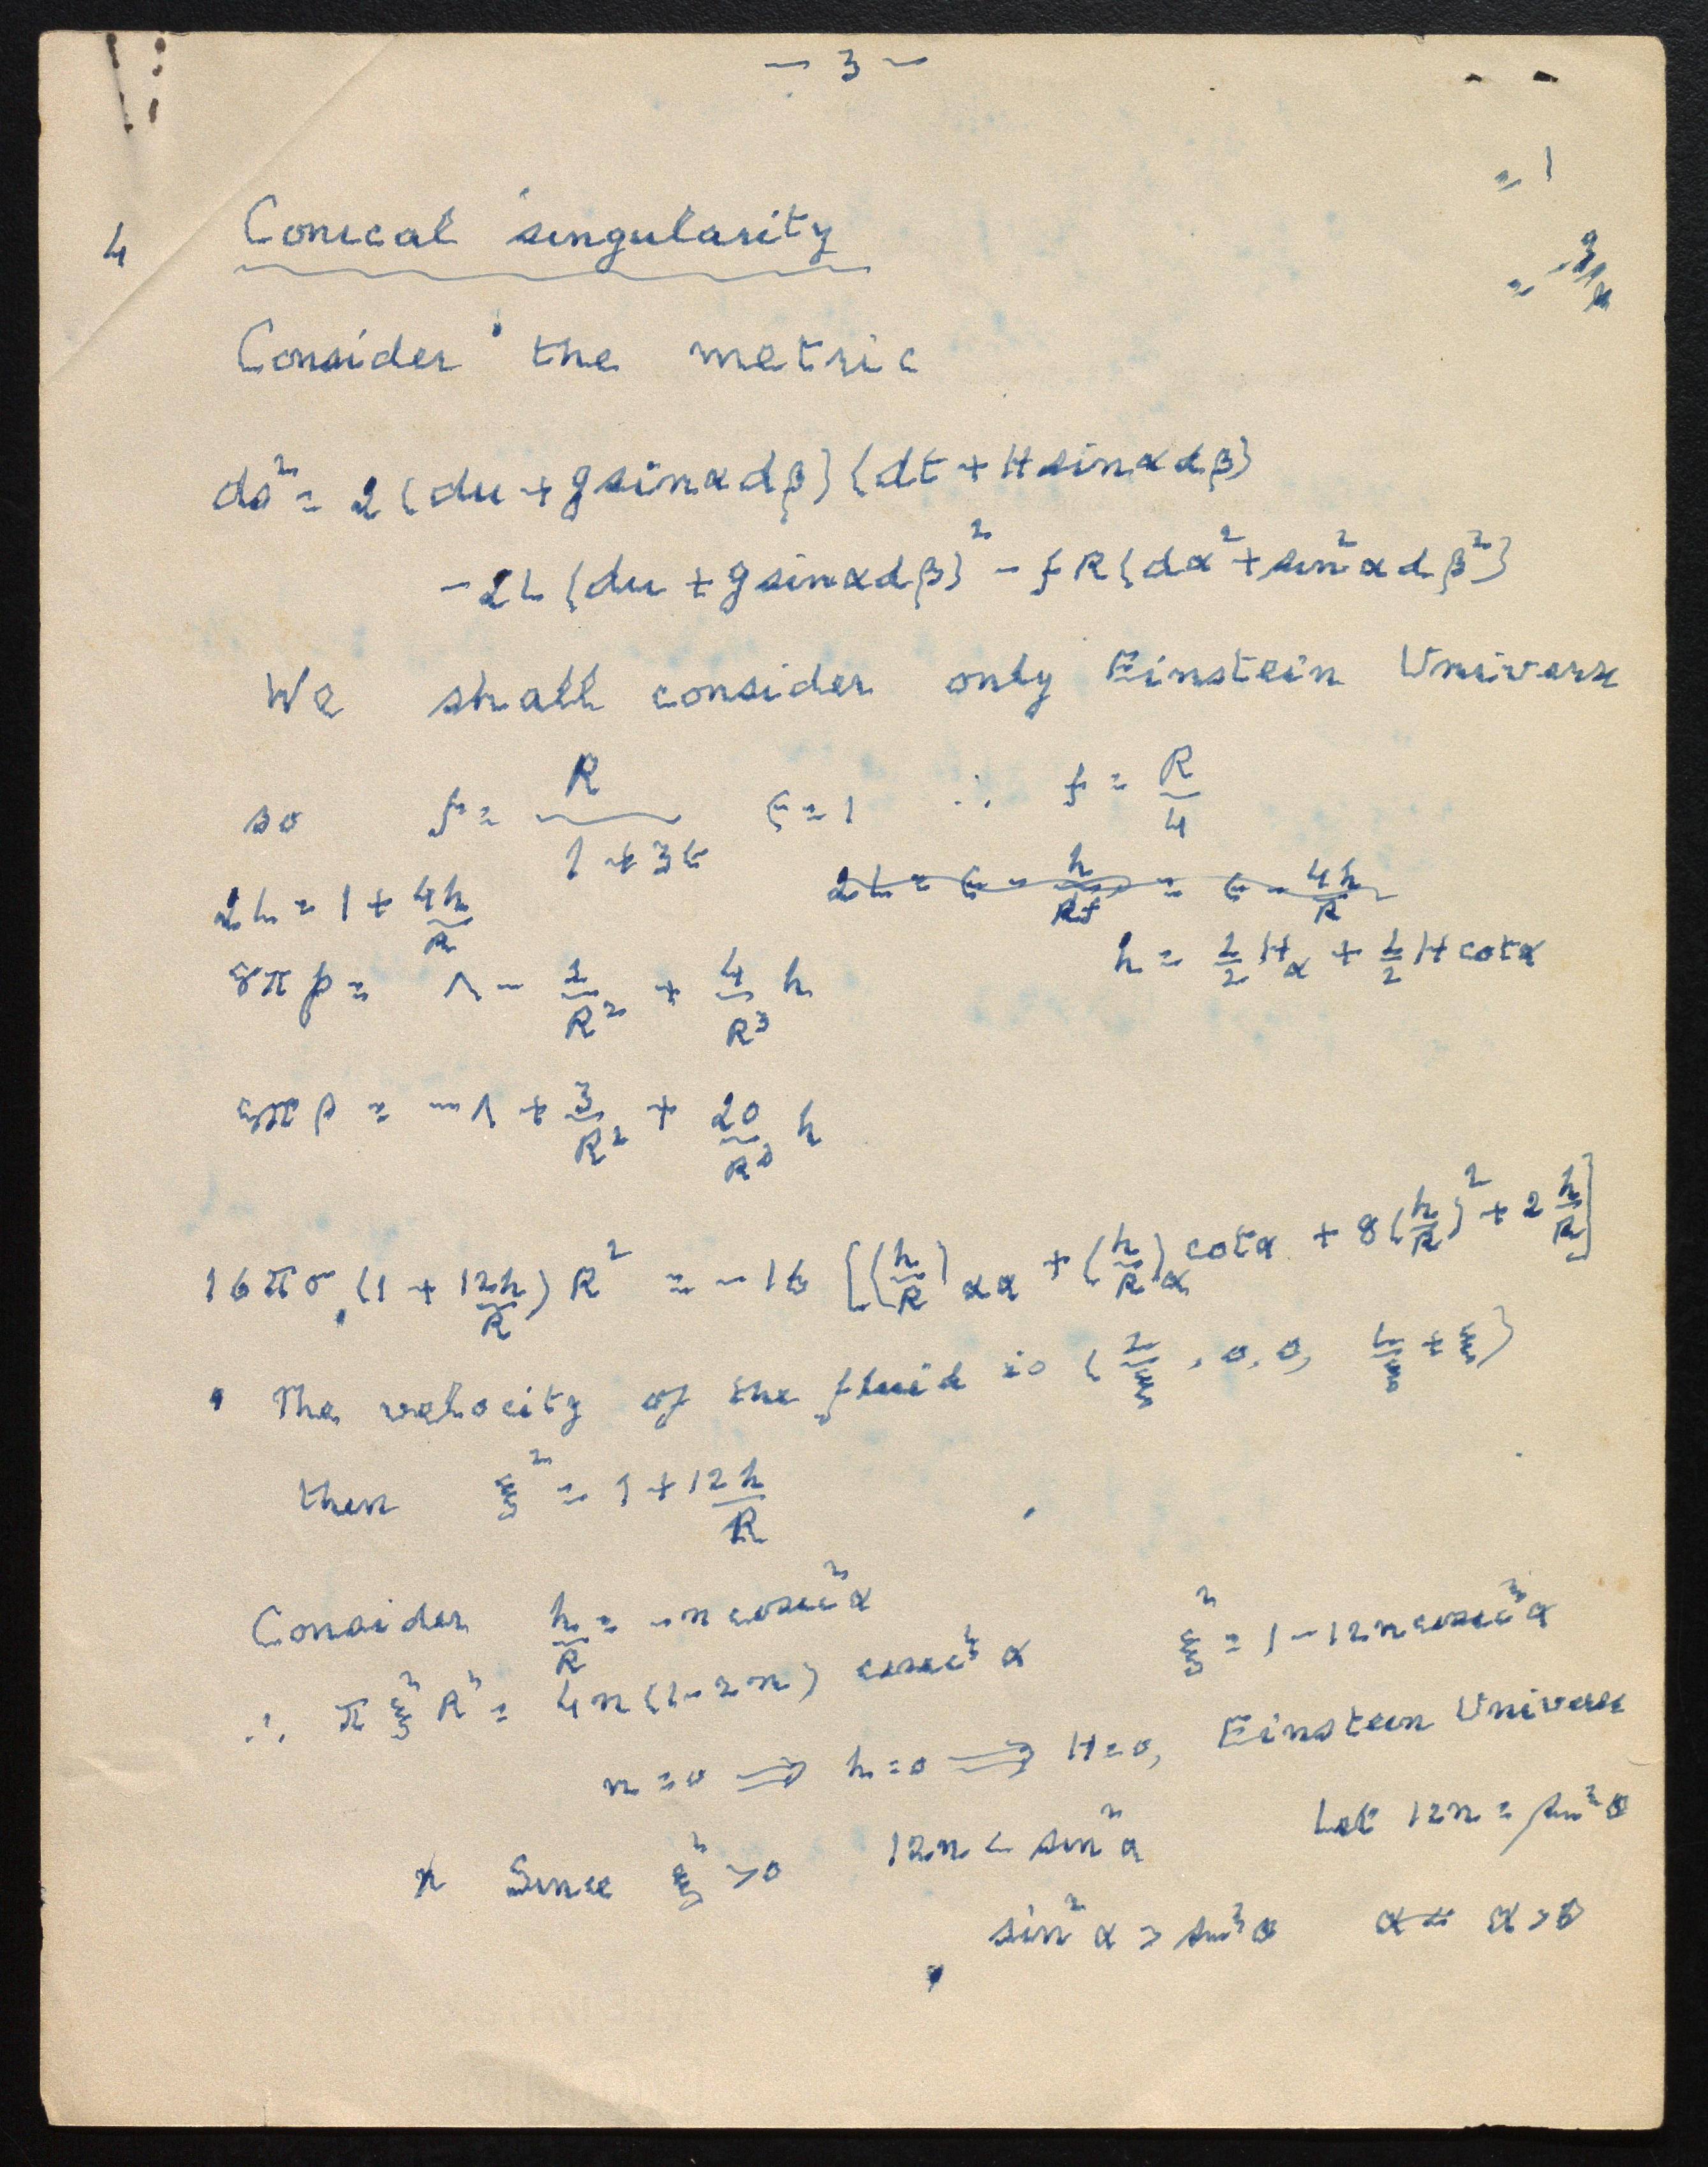 - 3 -
= 1
= -3/
4 Conical singularity
Consider the metric
ds² = 2 (du + g sinα dβ) (dt + H sinα dβ)
- 2L (du + g sinα dβ)² - fR (dα² + sin²α dβ²)
We shall consider only Einstein Universe
so f = R/(1 + 3ε) ε = 1 ∴ f = R/4
2L = 1 + 4h/R 2L = ε - h/Rf = ε - 4h/R
h = 1/2 H_α + 1/2 H cotα
8πp = Λ - 1/R² + 4/R³ h
8πρ = -Λ + 3/R² + 20/R³ h
16πσ (1 + 12h/R) R² = -16 [(h/R)_αα + (h/R)_α cotα + 8(h/R)² + 2 h/R]
The velocity of the fluid is (1/ξ, 0, 0, 1/ξ + ξ)
then ξ² = 1 + 12h/R
Consider h/R = -n cosec²α ξ² = 1 - 12n cosec²α
∴ π ξ² R² = 4n(1-2n) cosec⁴α
n = 0 ⟹ h = 0 ⟹ H = 0, Einstein Universe
Since ξ² > 0 12n < sin²α Let 12n = sin²θ
sin²α > sin²θ α = α > θ